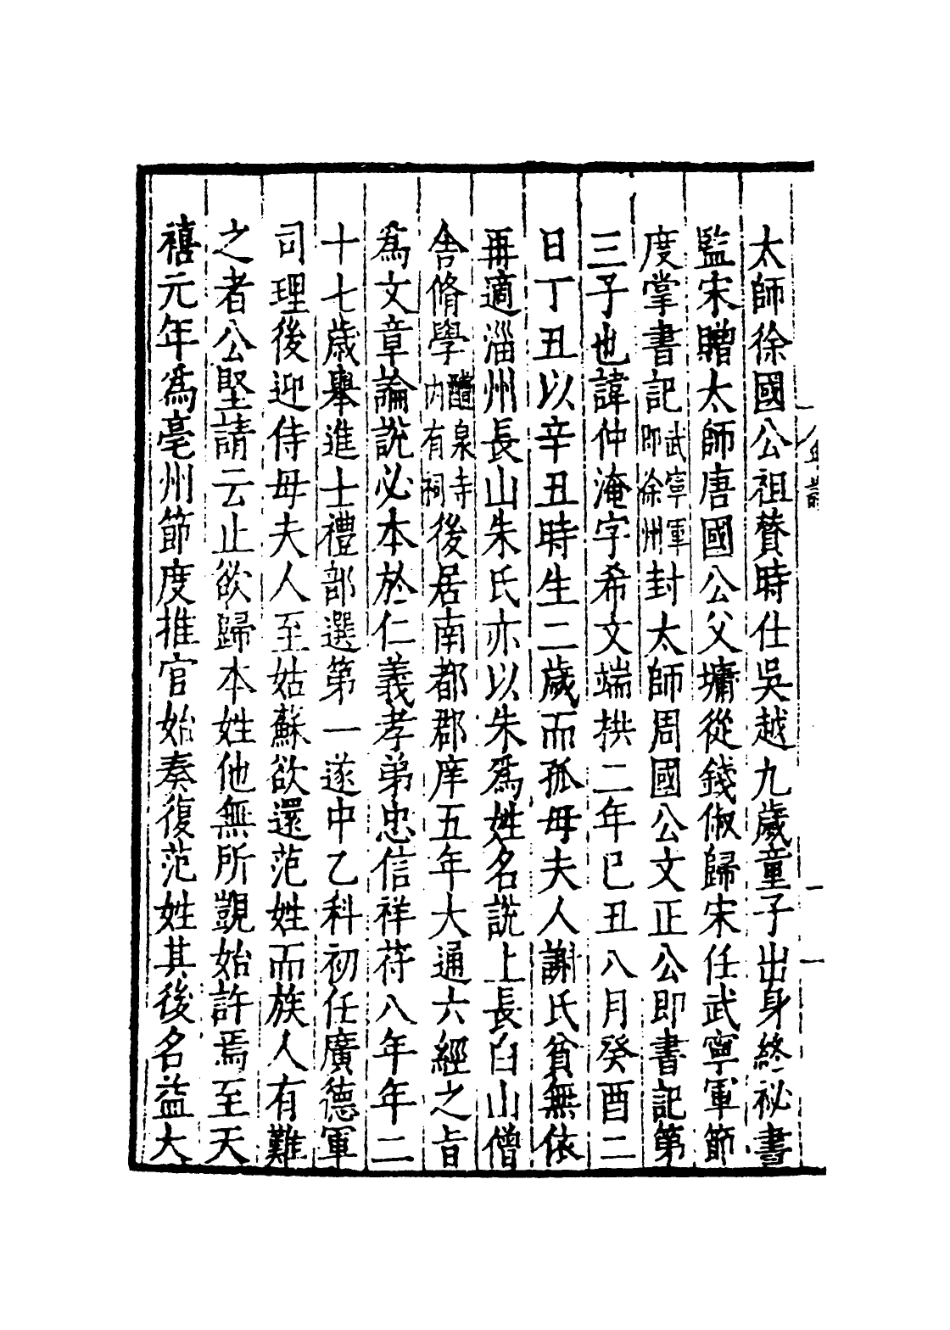 太師徐國公祖贊時仕吳越九歲童子出身終祕書
監宋贈太師唐國公父墉從錢俶歸宋任武寧軍節
度掌書記武寧軍即徐州封太師周國公文正公即書記第
三子也諱仲淹字希文端拱二年已丑八月癸酉二
日丁丑以辛丑時生二歲而孤母夫人謝氏貧無依
再適淄州長山朱氏亦以朱爲姓名說上長白山僧
舍脩學醴泉寺內有祠後居南都郡庠五年大通六經之旨
爲文章論說必本於仁義孝弟忠信祥符八年年二
十七歲舉進士禮部選第一遂中乙科初任廣德軍
司理後迎侍母夫人至姑蘇欲還范姓而族人有難
之者公堅請云止欲歸本姓他無所覬始許焉至天
禧元年爲亳州節度推官始奏復范姓其後名益大